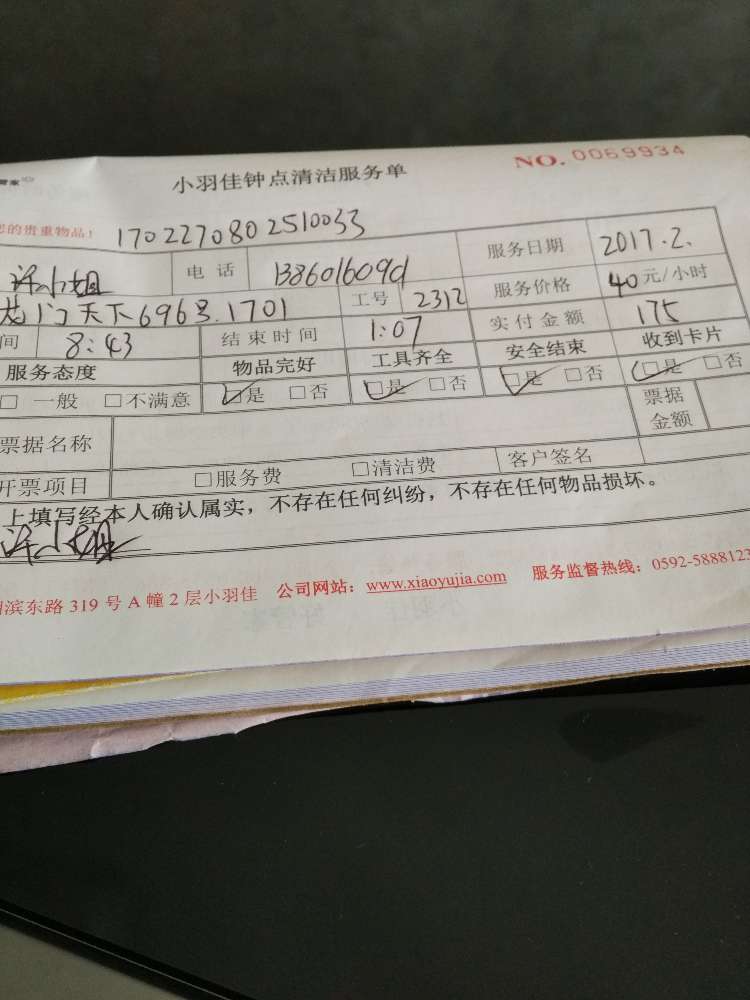 管家
小羽佳钟点清洁服务单 NO. 0069934
的贵重物品! 1702270802510033
许小姐 电话 13860160901 服务日期 2017.2.
龙门天下696号.1701 工号 2312 服务价格 40元/小时
间 8:43 结束时间 1:07 实付金额 175
服务态度 物品完好 工具齐全 安全结束 收到卡片
□ 一般 □不满意 □是 □否 □是 □否 □是 □否 □是 □否
票据名称 票据金额
开票项目 □服务费 □清洁费 客户签名
上填写经本人确认属实,不存在任何纠纷,不存在任何物品损坏。
许小姐
滨东路 319 号 A 幢 2 层小羽佳 公司网站: www.xiaoyujia.com 服务监督热线: 0592-5888123